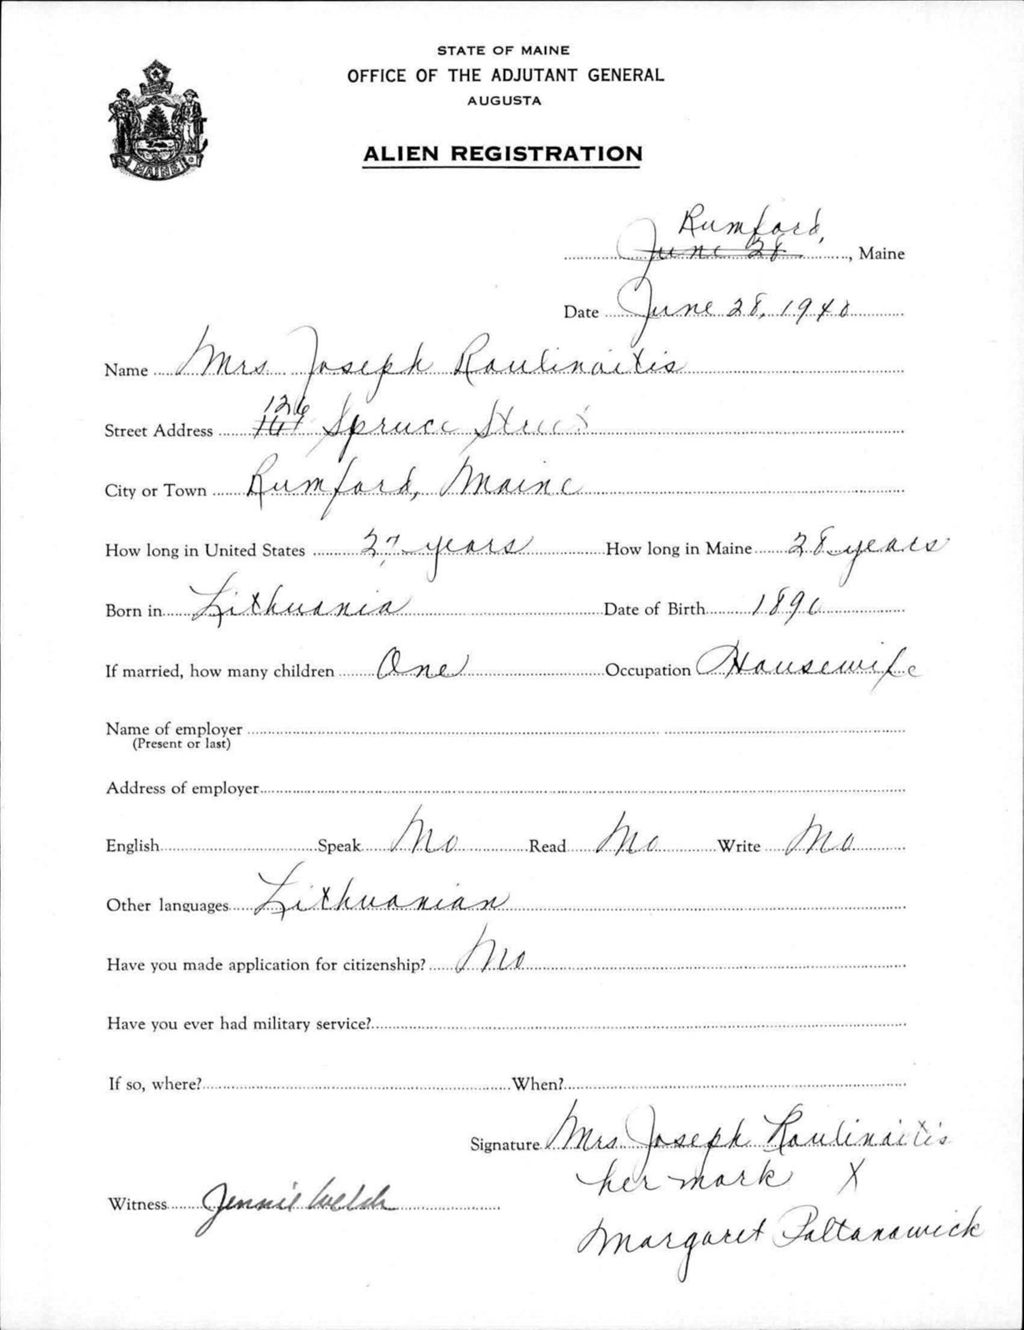 STATE OF MAINE
OFFICE OF THE ADJUTANT GENERAL
AUGUSTA
ALIEN REGISTRATION
MAINE
Rumford,
June 28, Maine
Date June 28, 1940
Name Mrs Joseph Raulinaitis
126
Street Address Spruce Street
City or Town Rumford, Maine
How long in United States years How long in Maine 28 years
Born in Lithuania Date of Birth
If married, how many children One Occupation Housewife
Name of employer
(Present or last)
Address of employer
English Speak No Read No Write No
Other languages Lithuanian
Have you made application for citizenship? No
Have you ever had military service?
If so, where? When?
Signature Mrs Joseph Raulinaitis
her mark X
Witness Jennie Welch
Margaret Paltanawick